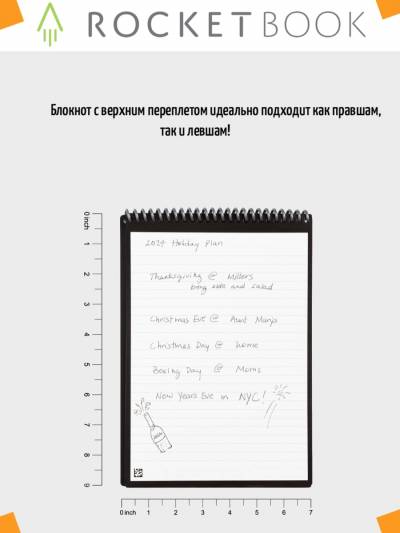 ROCKETBOOK
Блокнот с верхним переплетом идеально подходит как правшам,
так и левшам!
0 inch
1
2
3
4
5
6
7
8
9
2024 Holiday Plan
Thanksgiving @ Millers
bring side and salad
Christmas Eve @ Aunt Margs
Christmas Day @ home
Boxing Day @ Moms
New Years Eve in NYC!
0 inch 1 2 3 4 5 6 7